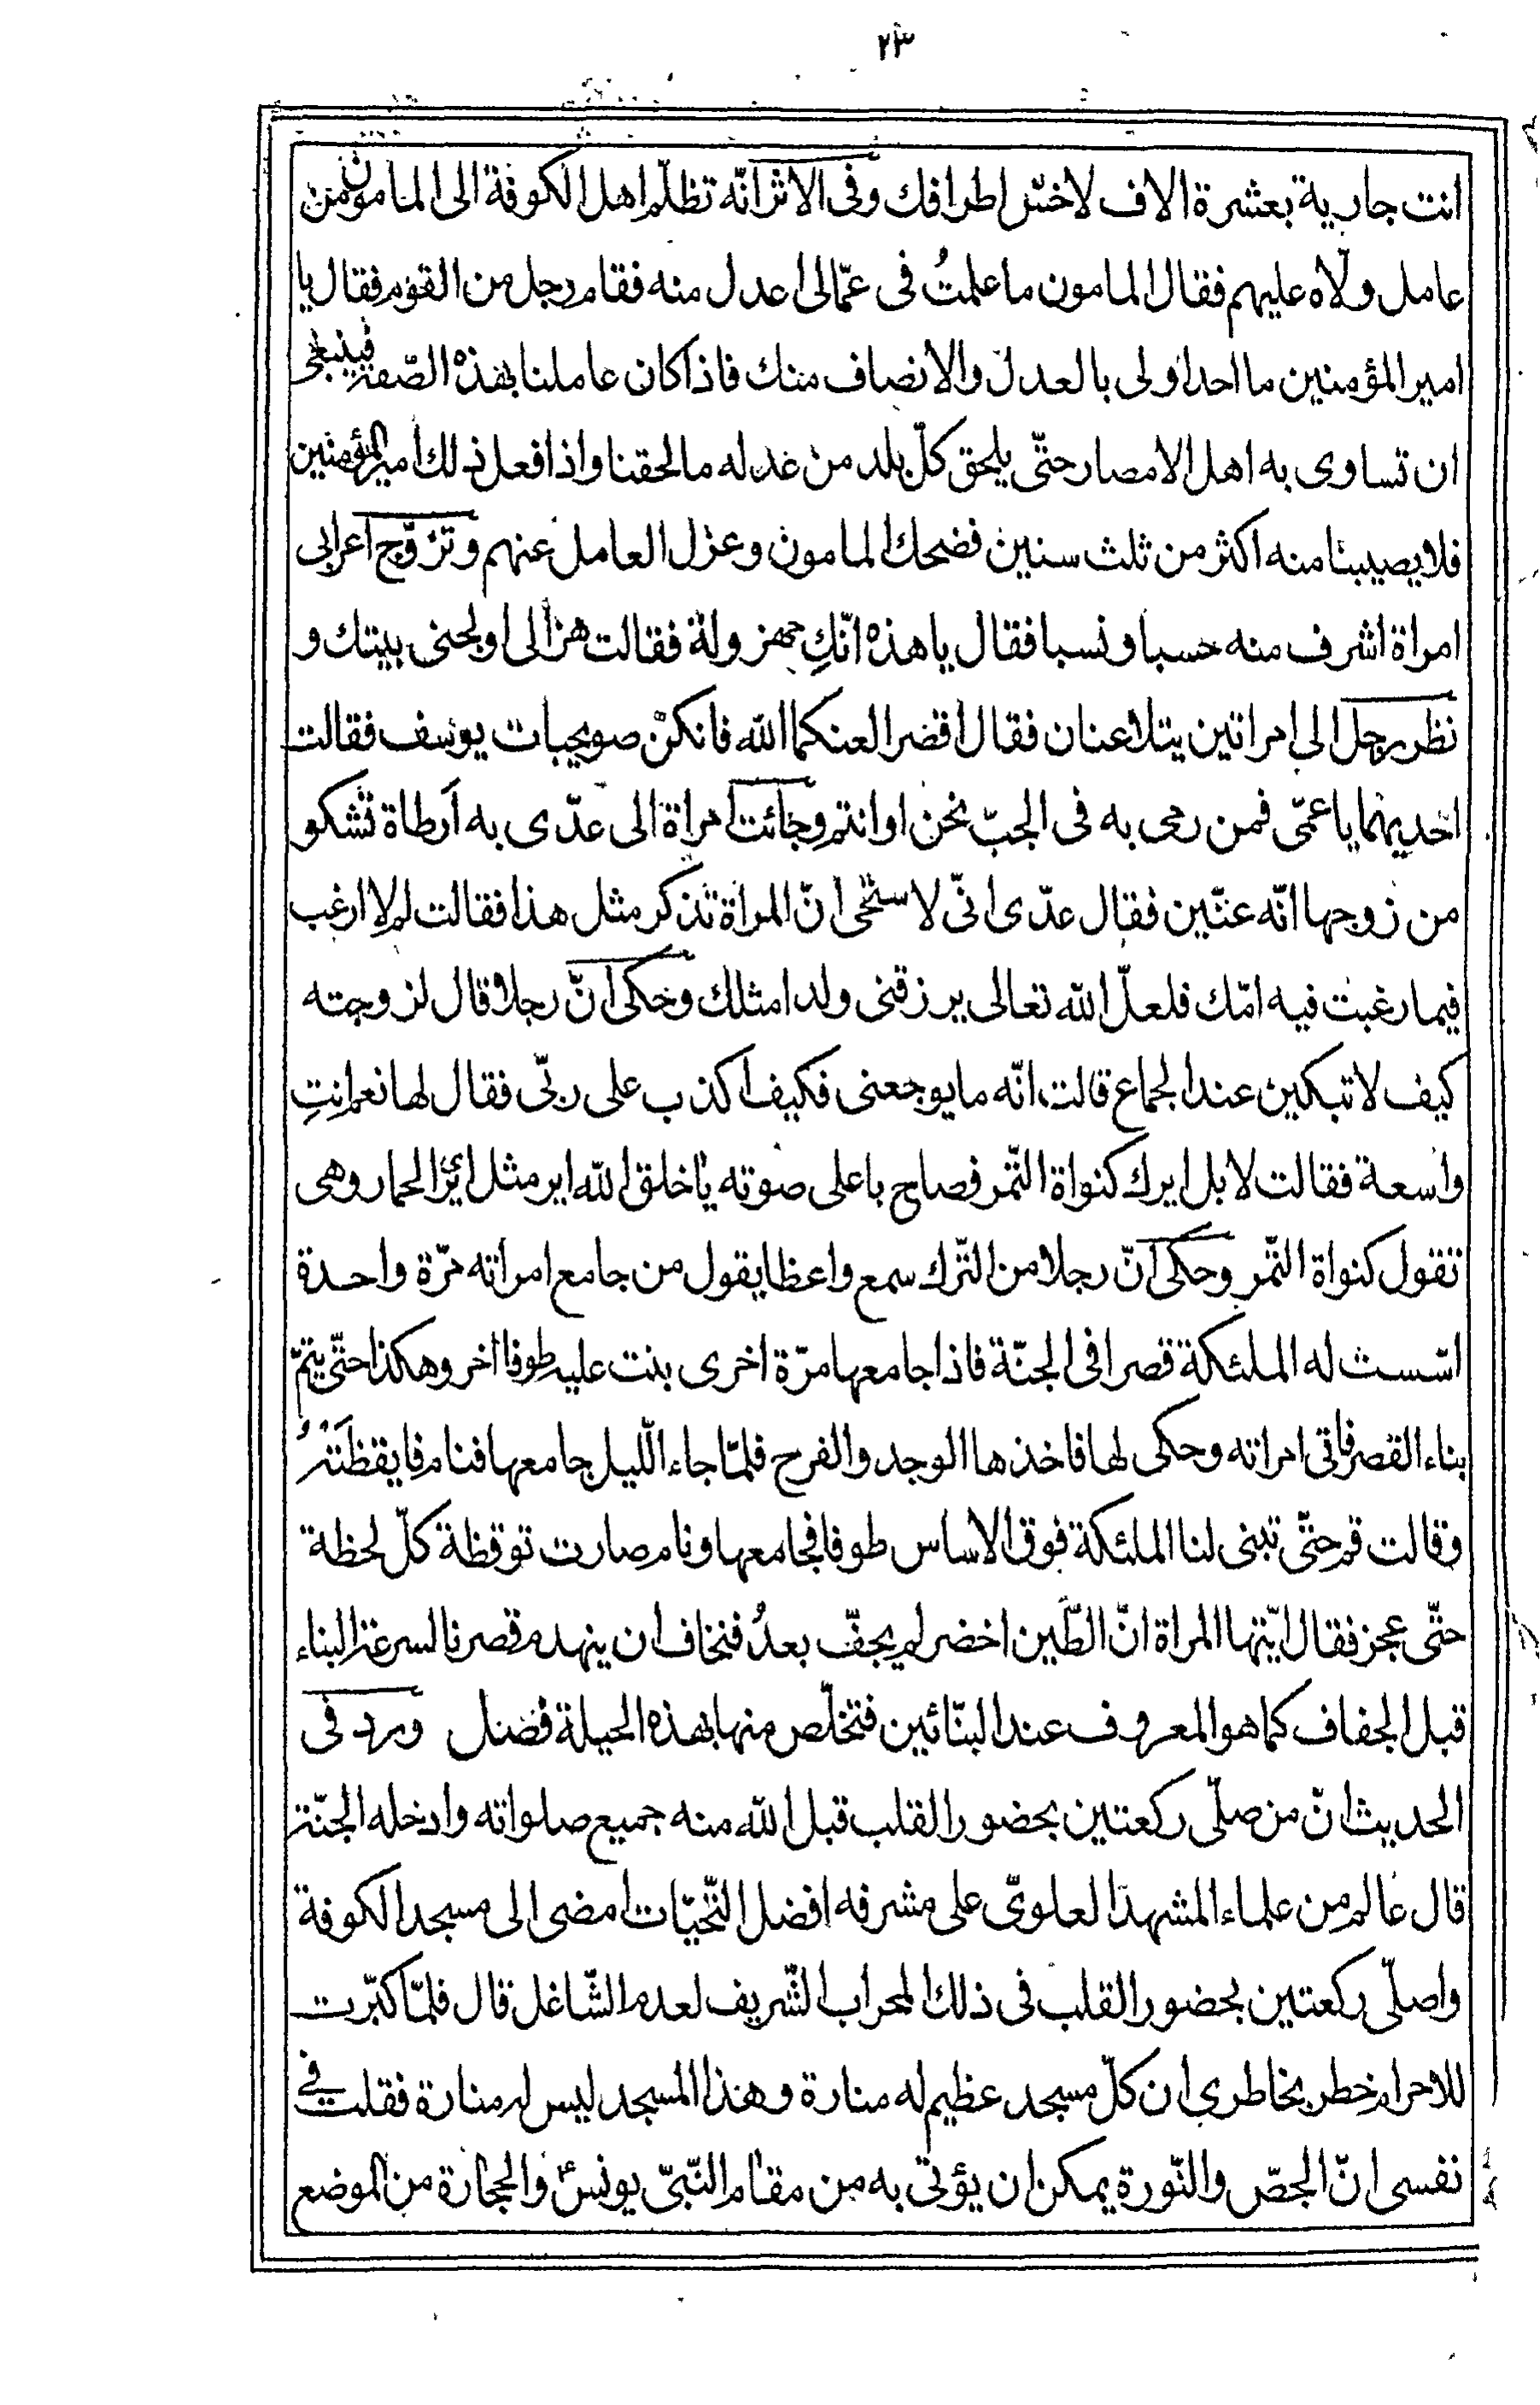 ٢٣
انت جارية بعشرة الاف لاخسّ اطرافك وفى الاثر انّه تظلّم اهل الكوفة الى المامون من
عامل ولّاه عليهم فقال المامون ما علمتُ فى عمّالى اعدل منه فقام رجل من القوم فقال يا
امير المؤمنين ما احد اولى بالعدل والانصاف منك فاذا كان عاملنا بهذه الصّفة فينبغى
ان تساوى به اهل الامصار حتّى يلحق كلّ بلد من عدله ما لحقنا واذا فعل ذلك امير المؤمنين
فلا يصيبنا منه اكثر من ثلث سنين فضحك المامون وعزل العامل عنهم وتزوّج اعرابى
امراة اشرف منه حسبا ونسبا فقال يا هذه انّكِ مهزولة فقالت هزالى اولجنى بيتك و
نظر رجل الى امراتين يتلاعنان فقال اقصرا لعنكما الله فانكنّ صويحبات يوسف فقالت
احديهما يا عمّى فمن رمى به فى الجبّ نحن او انتم وجائت امراة الى عدّى به ارطاة تشكو
من زوجها انّه عنّين فقال عدّى انّى لاستحى انّ المراة تذكر مثل هذا فقالت لم لا ارغب
فيما رغبت فيه امّك فلعلّ الله تعالى يرزقنى ولدا مثلك وحكى انّ رجلا قال لزوجته
كيف لا تبكين عند الجماع قالت انّه ما يوجعنى فكيف اكذب على ربّى فقال لها نعم انتِ
واسعة فقالت لا بل ايرك كنواة التّمر فصاح باعلى صوته يا خلق الله اير مثل اير الحمار وهى
تقول كنواة التّمر وحكى انّ رجلا من التّرك سمع واعظا يقول من جامع امراته مرّة واحدة
اسّست له الملئكة قصرا فى الجنّة فاذا جامعها مرّة اخرى بنت عليه طوفا اخر وهكذا حتّى يتمّ
بناء القصر فاتى امراته وحكى لها فاخذها الوجد والفرح فلمّا جاء اللّيل جامعها فنام فايقظَتْهُ
وقالت قم حتّى تبنى لنا الملئكة فوق الاساس طوفا فجامعها ونام صارت توقظة كلّ لحظة
حتّى عجز فقال ايّتها المراة انّ الطّين اخضر لم يجفّ بعدُ فنخاف ان ينهدم قصرنا لسرعة البناء
قبل الجفاف كما هو المعروف عند البنّائين فتخلّص منها بهذه الحيلة فصل ورد فى
الحديث انّ من صلّى ركعتين بحضور القلب قبل الله منه جميع صلواته وادخله الجنّة
قال عالم من علماء المشهد العلوىّ على مشرفه افضل التّحيّات امضى الى مسجد الكوفة
واصلّى ركعتين بحضور القلب فى ذلك المحراب الشّريف لعدم الشّاغل قال فلمّا كبّرت
للاحرام خطر بخاطرى ان كلّ مسجد عظيم له منارة وهذا المسجد ليس له منارة فقلت فى
نفسى انّ الجصّ والنّورة يمكن ان يؤتى به من مقام النّبىّ يونس ع والحجارة من الموضع